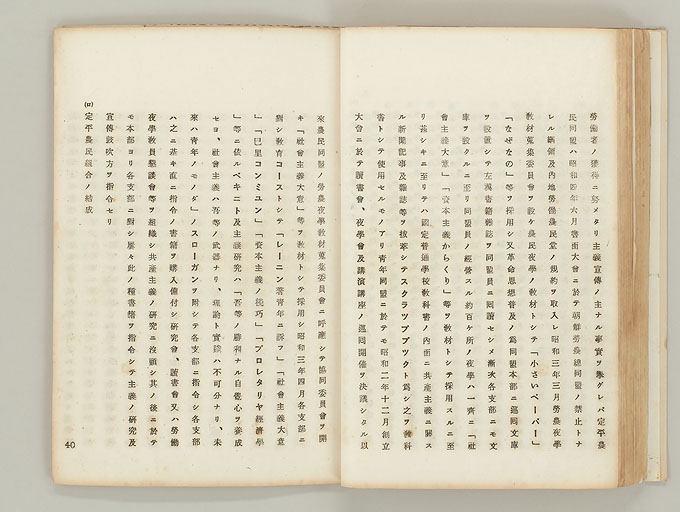 勞働者ノ獲得ニ努メタリ主義宣傳ノ主ナル事實ヲ擧グレバ定平農
民同盟ハ昭和四年六月書面大會ニ於テ朝鮮勞農總同盟ノ禁止トナ
レル綱領及內地勞働農民黨ノ規約ヲ取入レ昭和三年三月勞農夜學
敎材蒐集委員會ヲ設ケ農民夜學ノ敎材トシテ「小さいペーパー」
「なぜなの」等ヲ採用シ又革命思想普及ノ爲同盟本部ニ巡囘文庫
ヲ設置シテ左翼書籍雜誌ヲ同盟員ニ囘讀セシメ漸次各支部ニモ文
庫ヲ設クルニ至リ同盟員ノ經營スル約百ケ所ノ夜學ハ一齊ニ「社
會主義大意」「資本主義からくり」等ヲ敎材トシテ採用スルニ至
リ甚シキニ至リテハ國定普通學校敎科書ノ內面ニ共產主義ニ關ス
ル新聞記事及雜誌等ヲ拔萃シテスクラップブックト爲シ之ヲ敎科
書トシテ使用セルモノアリ靑年同盟ニ於テモ昭和二年十二月創立
大會ニ於テ讀書會、夜學會及講演講座ノ巡囘開催ヲ決議シタル以
來農民同盟ノ勞農夜學敎材蒐集委員會ニ呼應シテ協同委員會ヲ開
キ「社會主義大意」等ヲ敎材トシテ採用シ昭和三年四月各支部ニ
對シ敎育コーストシテ「レーニン著靑年ニ訴フ」「社會主義大意
」「巴里コンミユン」「資本主義ノ技巧」「プロレタリヤ經濟學
」等ニ依ルベキニト及主義硏究ハ「吾等ノ勝利ナル自衞心ヲ養成
セヨ、社會主義ハ吾等ノ武器ナリ、理論ト實踐ハ不可分ナリ、未
來ハ靑年ノモノダ」ノスローガンヲ附シテ各支部ニ指令シ各支部
ハ之ニ基キ直ニ指令ノ書籍ヲ購入備付シ硏究會、讀書會又ハ勞働
夜學敎員懇談會等ヲ組織シ共產主義ノ硏究ニ沒頭シ其ノ後ニ於テ
モ本部ヨリ各支部ニ對シ屢々此ノ種書籍ヲ指令シテ主義ノ硏究及
宣傳鼓吹方ヲ指令セリ
(ロ) 定平農民組合ノ結成
40